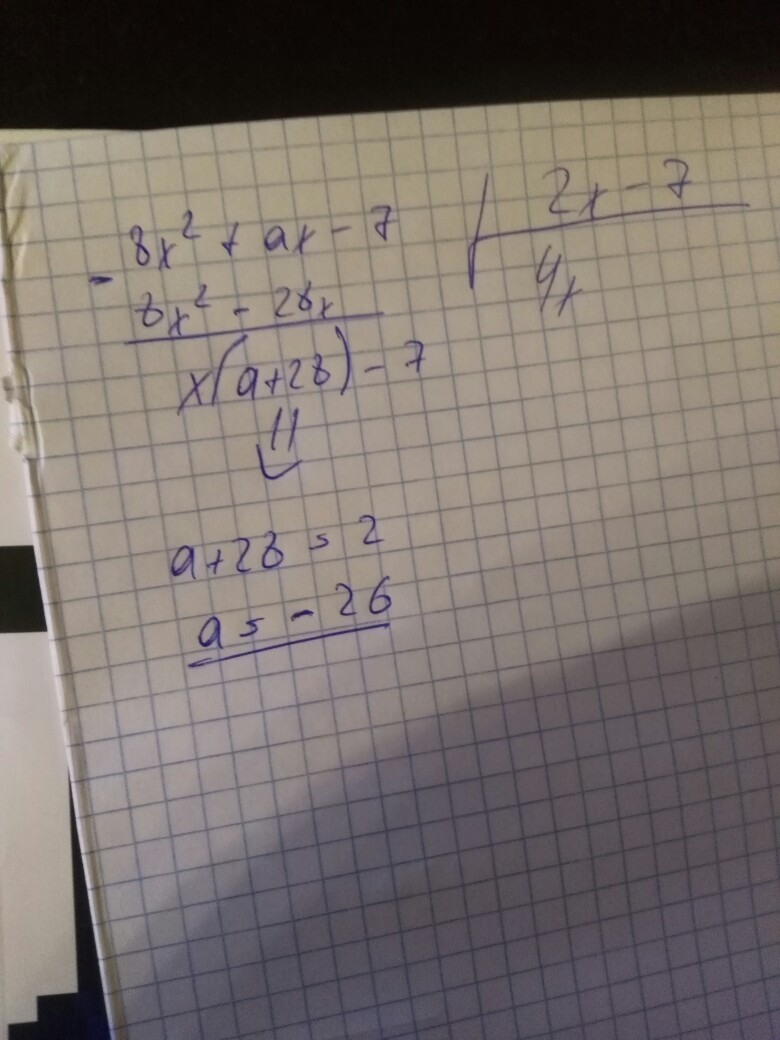 8x² + ax - 7 | 2x - 7
- 8x² - 28x | 4x
x(a+28) - 7
⇓
a+28 = 2
a = - 26